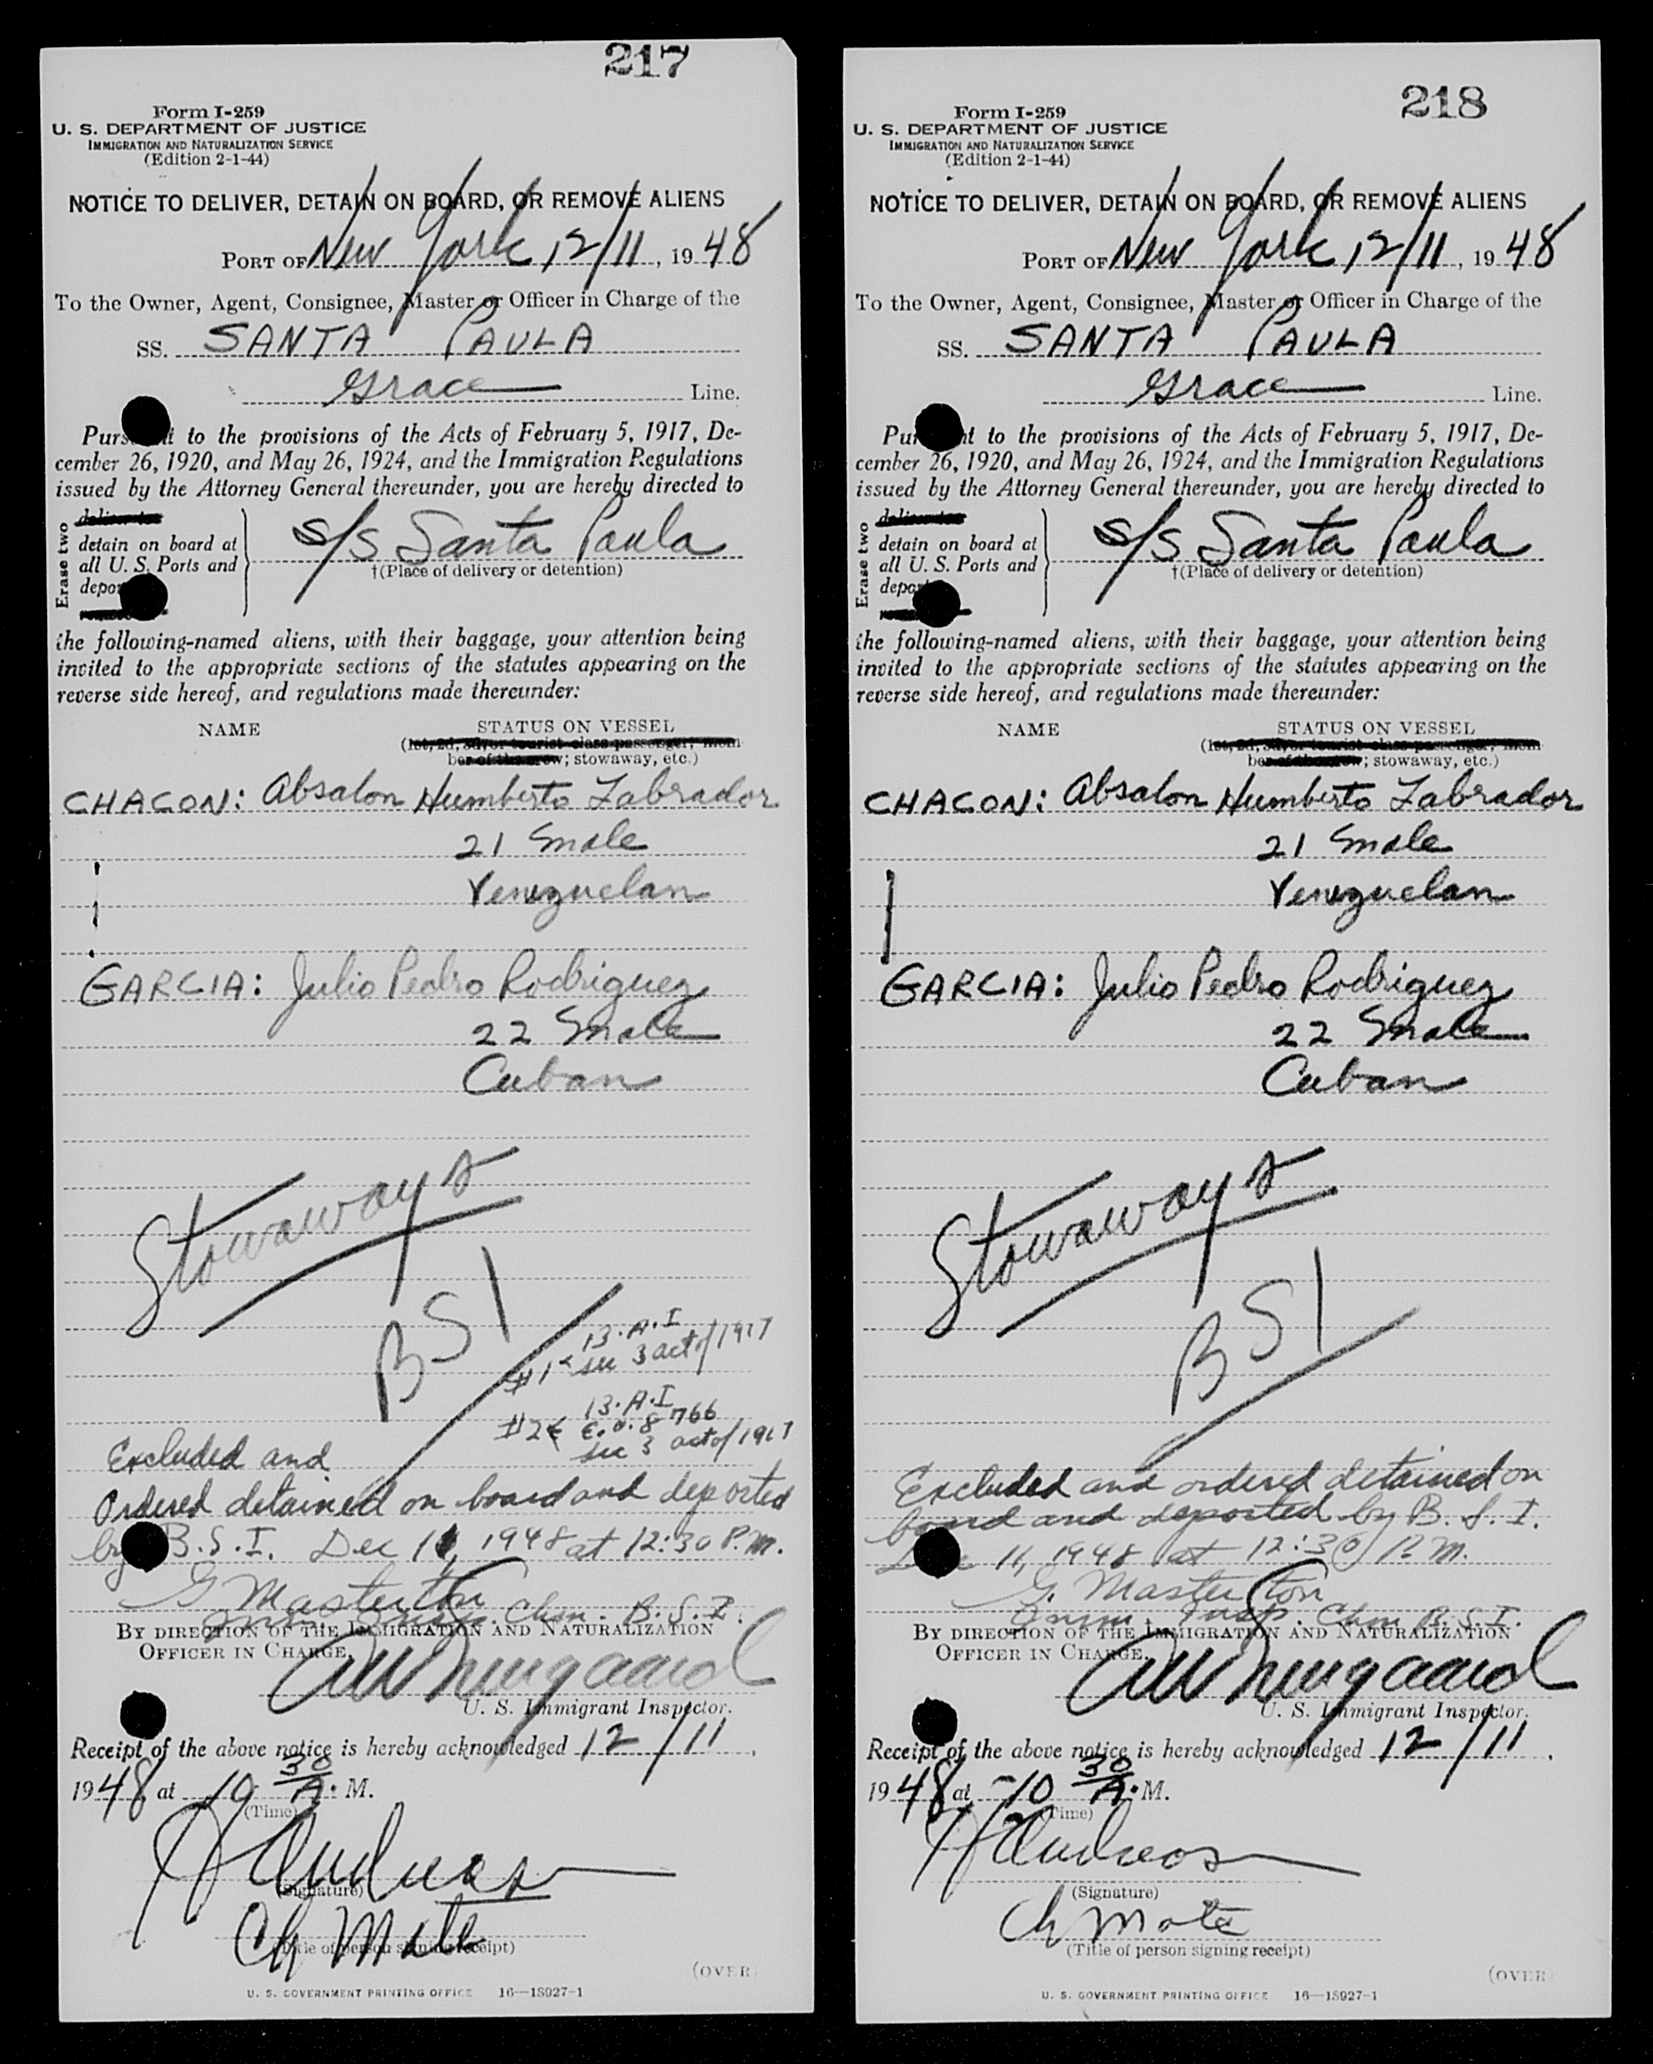 217
Form I-259
U. S. DEPARTMENT OF JUSTICE
IMMIGRATION AND NATURALIZATION SERVICE
(Edition 2-1-44)
NOTICE TO DELIVER, DETAIN ON BOARD, OR REMOVE ALIENS
PORT OF New York 12/11, 1948
To the Owner, Agent, Consignee, Master or Officer in Charge of the
SS. SANTA PAULA
Grace Line.
to the provisions of the Acts of February 5, 1917, De-
cember 26, 1920, and May 26, 1924, and the Immigration Regulations
issued by the Attorney General thereunder, you are hereby directed to
Erase two
detain on board at
all U. S. Ports and
depor
S/S Santa Paula
†(Place of delivery or detention)
the following-named aliens, with their baggage, your attention being
invited to the appropriate sections of the statutes appearing on the
reverse side hereof, and regulations made thereunder:
NAME STATUS ON VESSEL
(1st, 2d, 3d, or tourist class passenger, mem-
ber of the crew; stowaway, etc.)
CHACON: Absalon Humberto Labrador
21 male
Venezuelan
GARCIA: Julio Pedro Rodriguez
22 male
Cuban
Stowaways
BSI
#1< 13.A.I
sec 3 act of 1917
#2< 13.A.I
E.O. 8766
sec 3 act of 1917
Excluded and
Ordered detained on board and deported
by B.S.I. Dec 11, 1948 at 12:30 P.M.
G Masterton
Imm. Insp. Chm. B.S.I.
BY DIRECTION OF THE IMMIGRATION AND NATURALIZATION
OFFICER IN CHARGE.
U. S. Immigrant Inspector.
Receipt of the above notice is hereby acknowledged 12/11,
1948 at 10 30 A. M.
(Time)
(Signature)
Ch Mate
(Title of person signing receipt)
(OVER)
U. S. GOVERNMENT PRINTING OFFICE 16—18027-1
218
Form I-259
U. S. DEPARTMENT OF JUSTICE
IMMIGRATION AND NATURALIZATION SERVICE
(Edition 2-1-44)
NOTICE TO DELIVER, DETAIN ON BOARD, OR REMOVE ALIENS
PORT OF New York 12/11, 1948
To the Owner, Agent, Consignee, Master or Officer in Charge of the
SS. SANTA PAULA
Grace Line.
to the provisions of the Acts of February 5, 1917, De-
cember 26, 1920, and May 26, 1924, and the Immigration Regulations
issued by the Attorney General thereunder, you are hereby directed to
Erase two
detain on board at
all U. S. Ports and
depor
S/S Santa Paula
†(Place of delivery or detention)
the following-named aliens, with their baggage, your attention being
invited to the appropriate sections of the statutes appearing on the
reverse side hereof, and regulations made thereunder:
NAME STATUS ON VESSEL
(1st, 2d, 3d, or tourist class passenger, mem-
ber of the crew; stowaway, etc.)
CHACON: Absalon Humberto Labrador
21 male
Venezuelan
GARCIA: Julio Pedro Rodriguez
22 male
Cuban
Stowaways
BSI
Excluded and ordered detained on
board and deported by B.S.I.
11, 1948 at 12:30 P.M.
G. Masterton
Imm. Insp. Chm B.S.I.
BY DIRECTION OF THE IMMIGRATION AND NATURALIZATION
OFFICER IN CHARGE.
U. S. Immigrant Inspector.
Receipt of the above notice is hereby acknowledged 12/11,
1948 at 10 30 A. M.
(Time)
(Signature)
Ch Mate
(Title of person signing receipt)
(OVER)
U. S. GOVERNMENT PRINTING OFFICE 16—18027-1